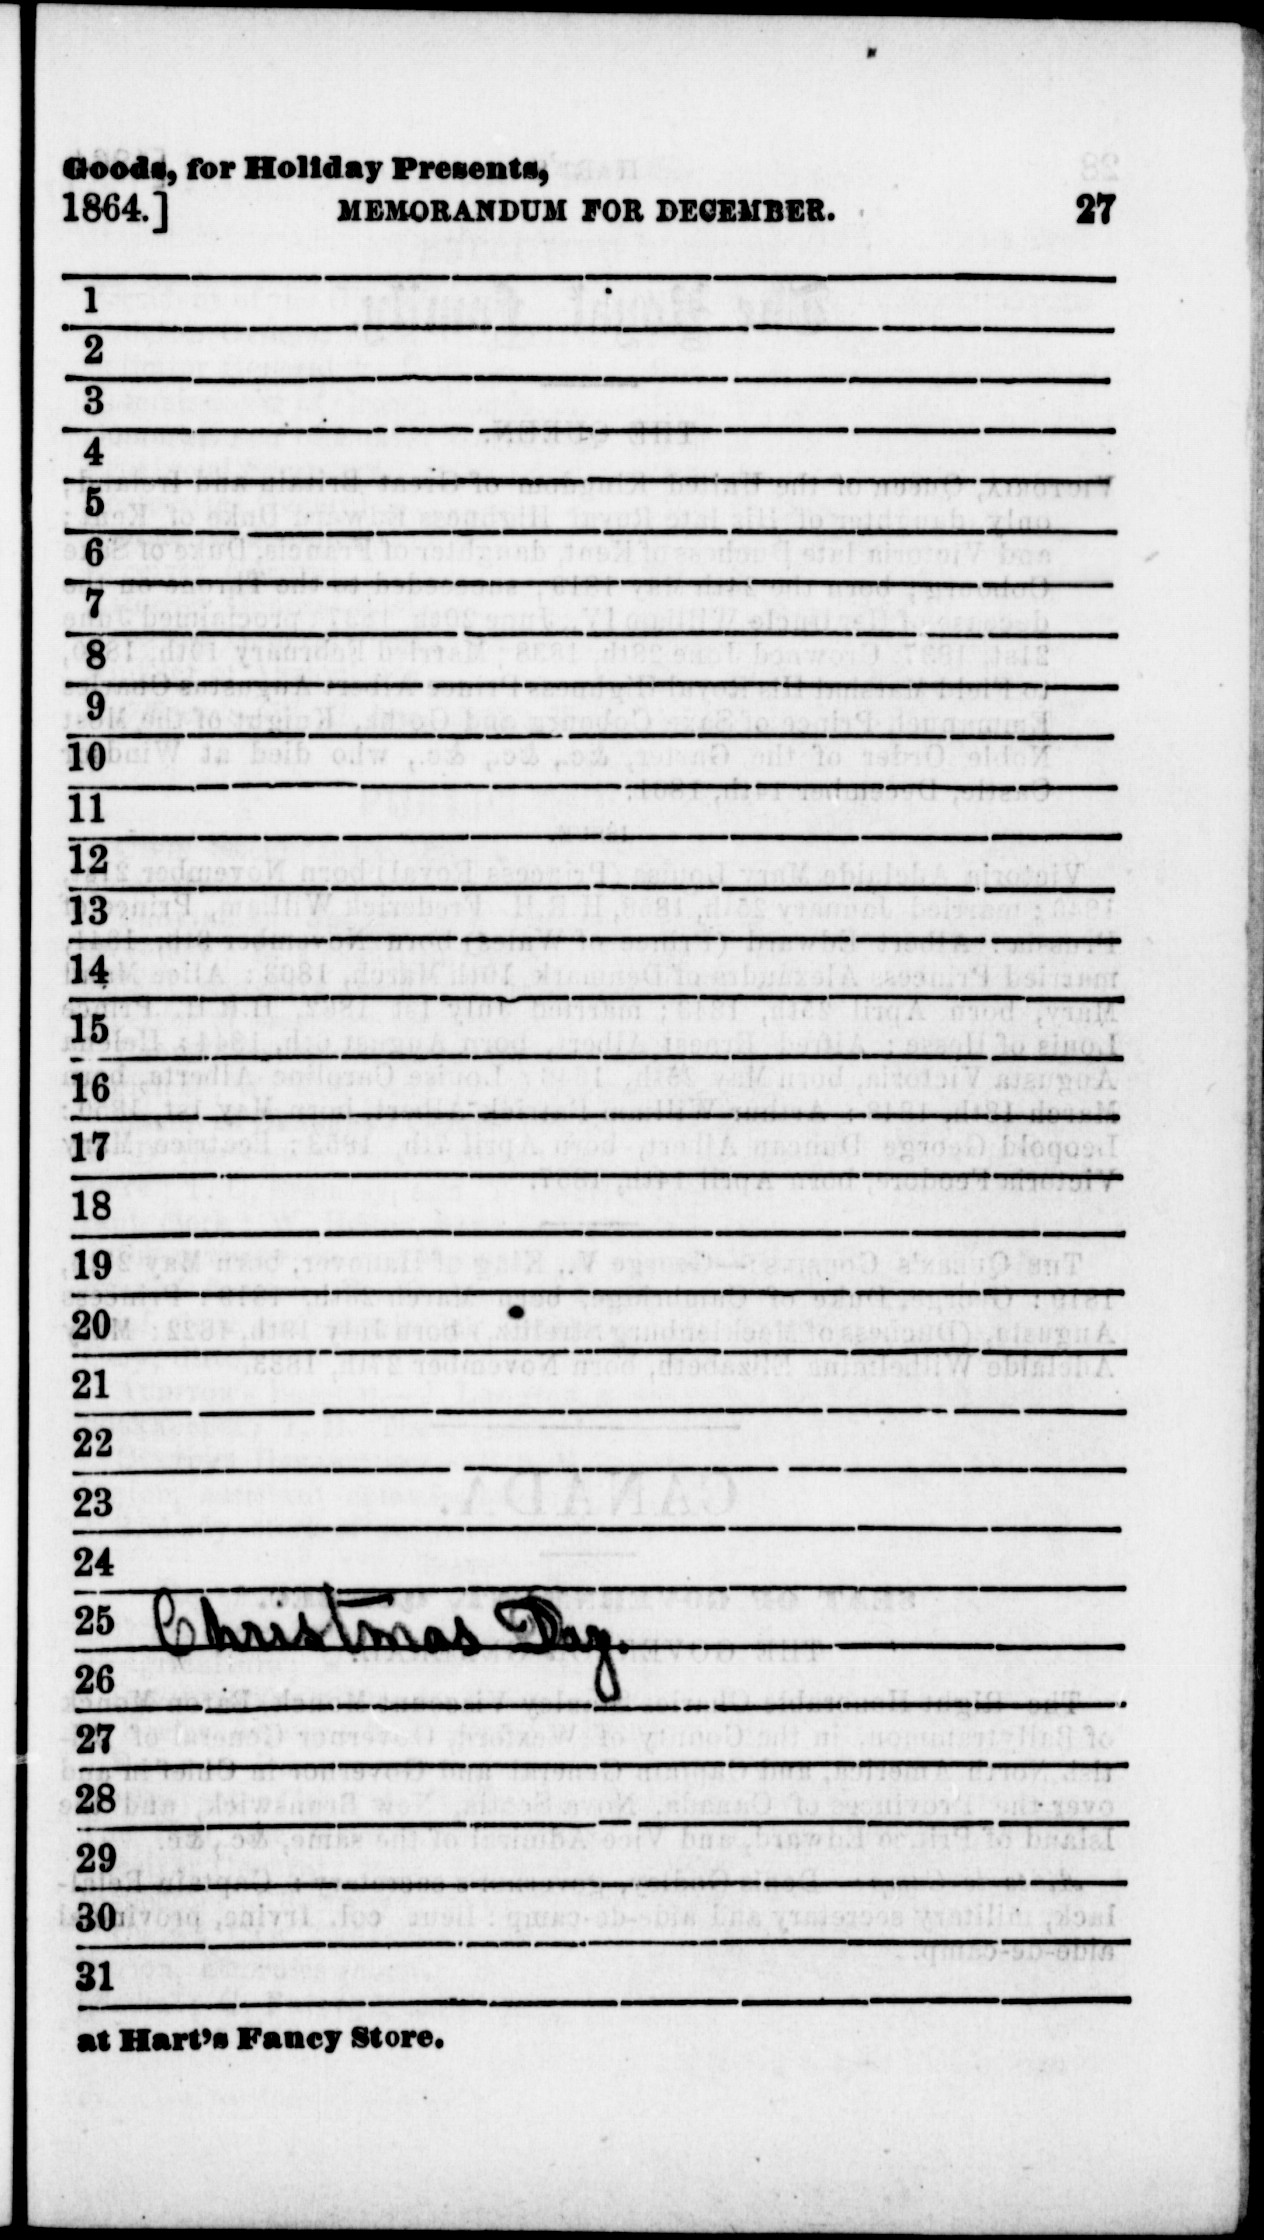 Goods, for Holiday Presents,
1864.] MEMORANDUM FOR DECEMBER. 27
1
2
3
4
5
6
7
8
9
10
11
12
13
14
15
16
17
18
19
20
21
22
23
24
25 Christmas Day.
26
27
28
29
30
31
at Hart's Fancy Store.